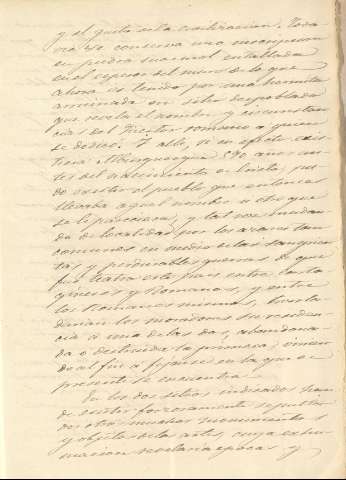 y el gusto de la civilizacion. Toda-
via se conserva una inscripcion
en piedra sucumal entallada
en el espesor del muro de lo que
ahora es tenido por una hermita
arruinada en sitio despoblado
que revela el nombre y circunstan-
cias del Pretor romano a quien
se dedicó. Y allí, si en efecto exis-
tiera Alburquerque 190 años an-
tes del nacimiento de Cristo, pu-
do existir el pueblo que entonces
llevaba aquel nombre u otro que
se le pareciera, y tal vez mudan-
do de localidad por los azares tan
comunes en medio de las sangrien-
tas y perdurables guerras de que
fué teatro este pais entre Carta-
gineses y Romanos, y entre
los Romanos mismos, trasla-
darian los moradores su residen-
cia a una de las dos, abandona-
da o destruida la primera, vinien-
do al fin a fijarse en la que al
presente se encuentra.
En los dos sitios indicados han
de existir forzosamente sepulta-
dos otros muchos monumentos
y objetos de las artes, cuya exhu-
macion revelaria epocas, y